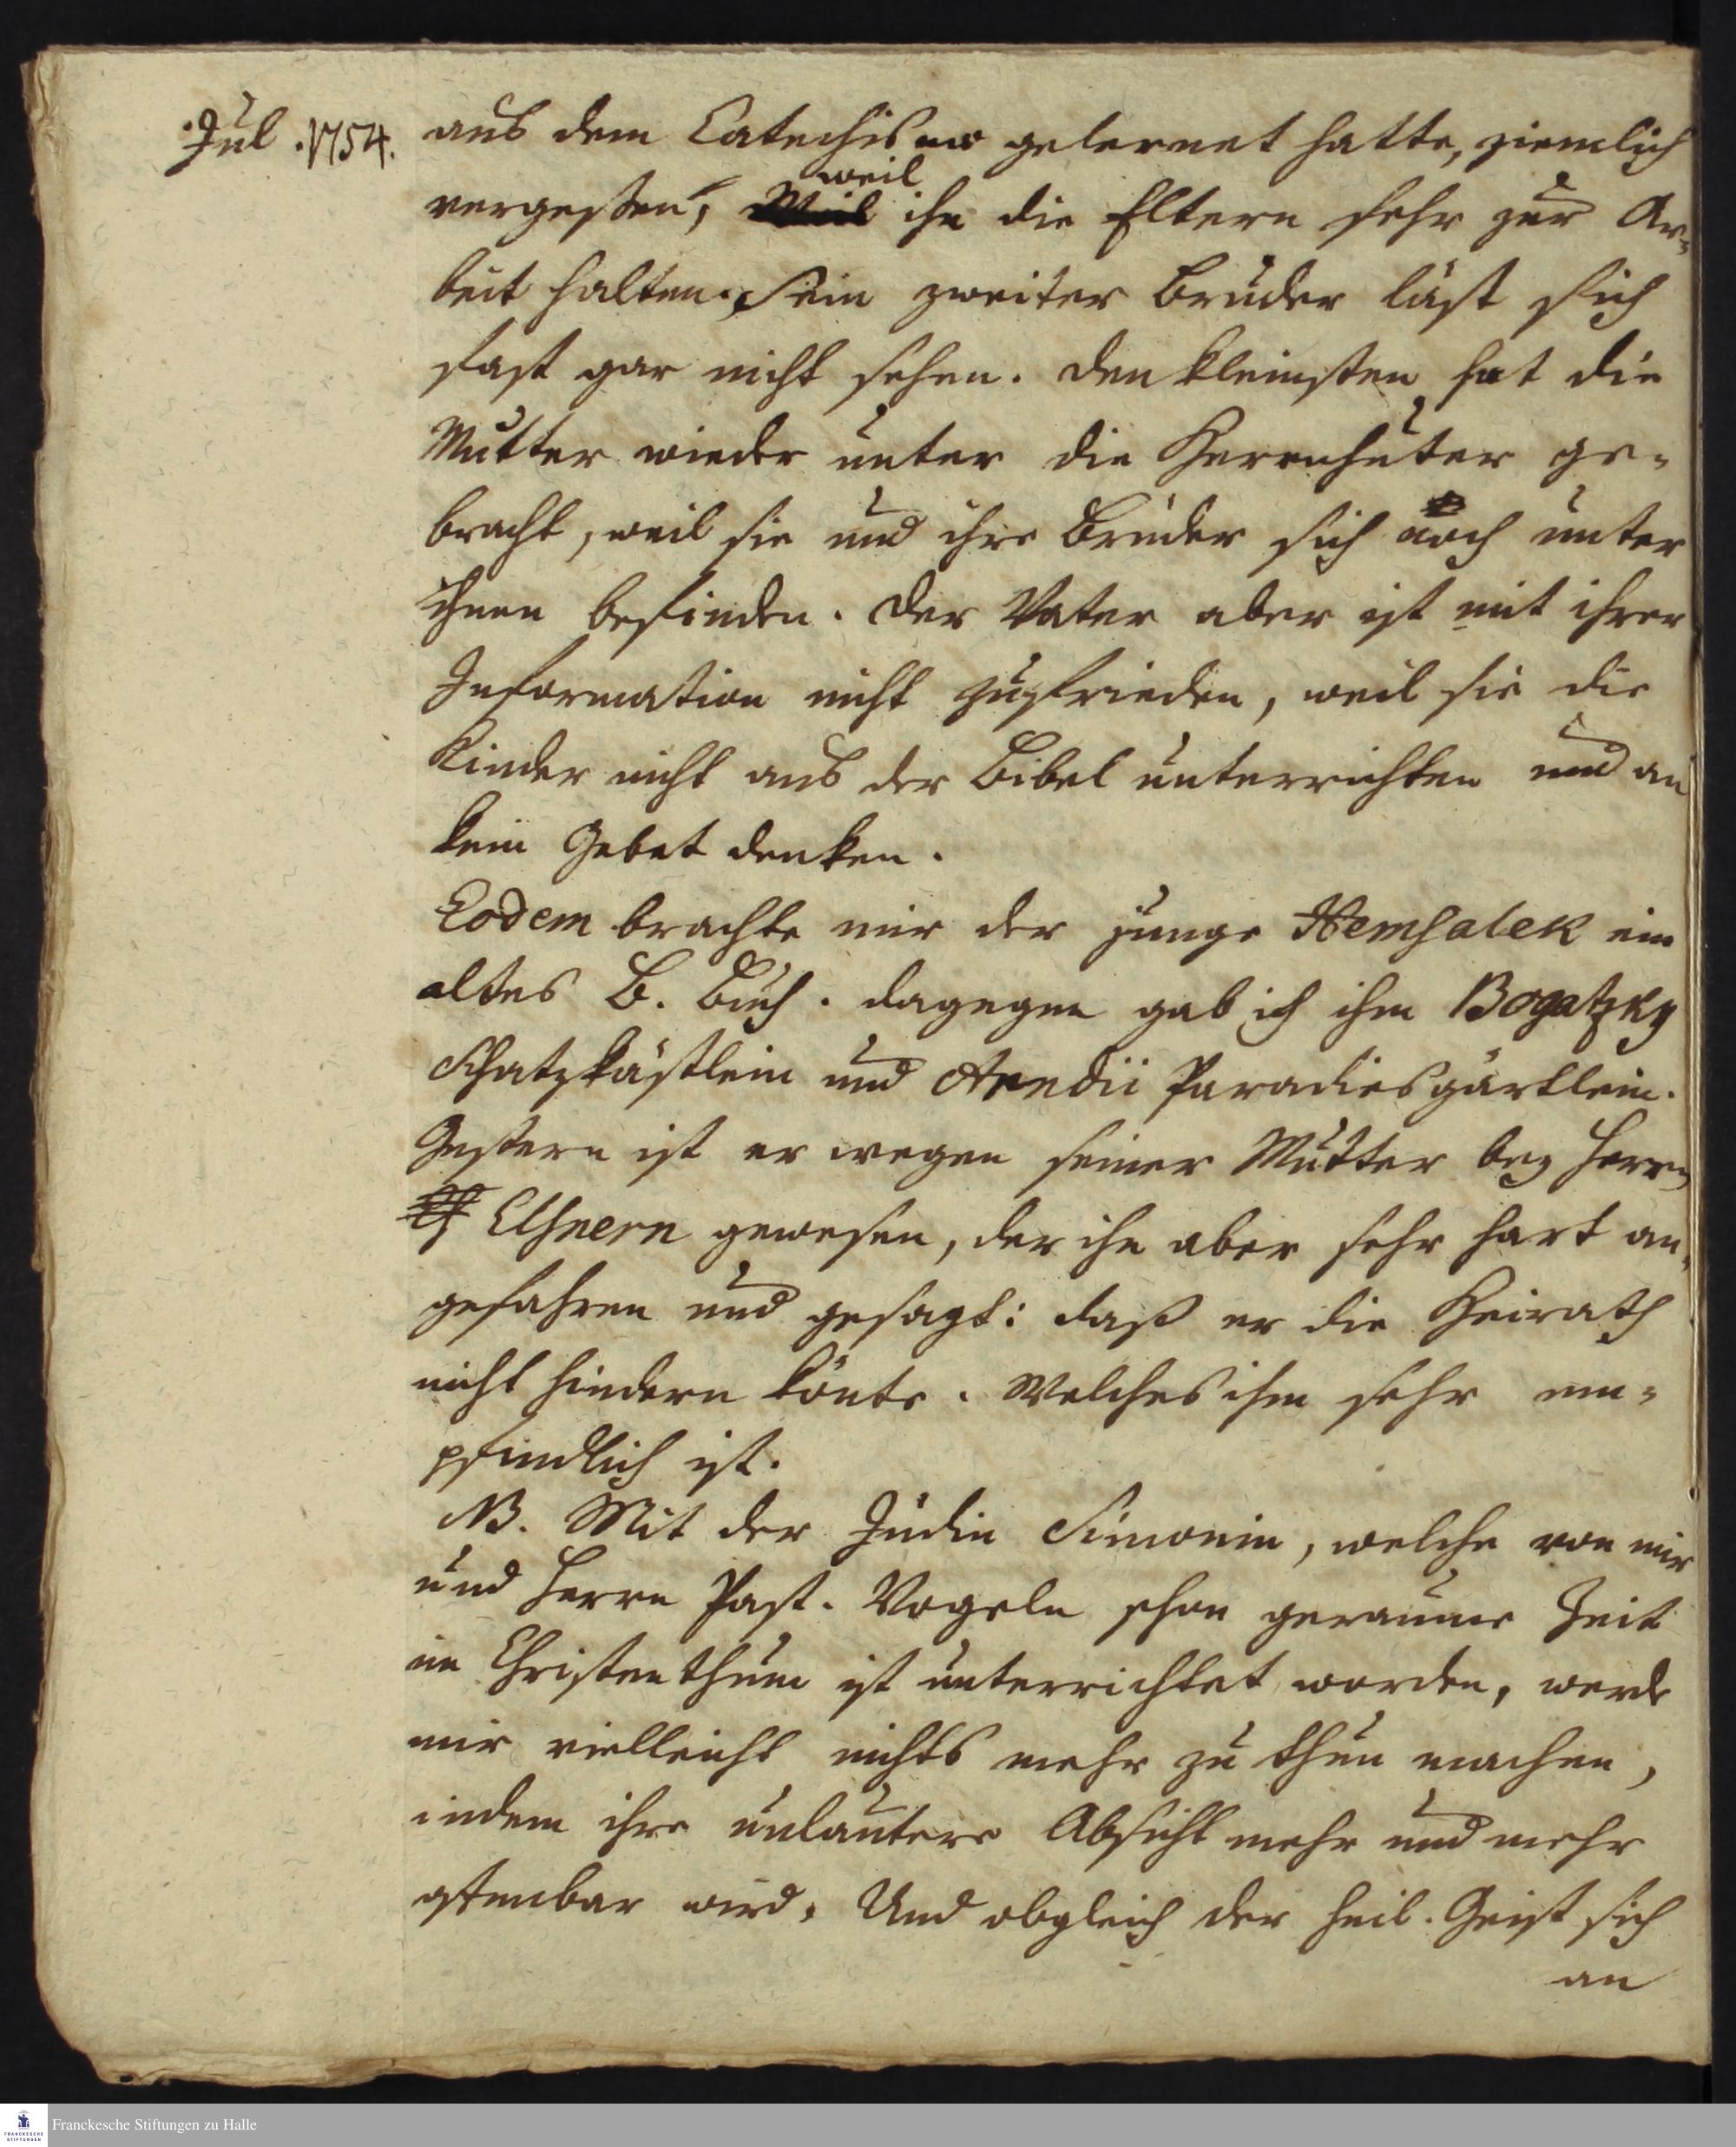 Jul. 1754.
aus dem Catechismo gelernet hatte, ziemlich
vergeßen, weil ihn die Eltern sehr zur Ar=
beit halten. Sein zweiter Bruder läst sich
fast gar nicht sehen. Den kleinsten hat die
Mutter wieder unter die Herrnhuter ge=
bracht, weil sie und ihre Brüder sich noch unter
ihnen befinden. Der Vater aber ist mit ihrer
Information nicht zufrieden, weil sie die
Kinder nicht aus der Bibel unterrichten und an
kein Gebet denken.
Eodem brachte mir der junge Hemsalek ein
altes B. Buch. dagegen gab ich ihm Bogatzky
Schatzkästlein und Arndii Paradiesgärtlein.
Gestern ist er wegen seiner Mutter bey Herrn
Elsnern gewesen, der ihn aber sehr hart an=
gefahren und gesagt: daß er die Heirath
nicht hindern könte. Welches ihm sehr em=
pfindlich ist.
NB. Mit der Jüdin Simonin, welche von mir
und Herrn Past. Vogeln schon geraume Zeit
im Christenthum ist unterrichtet worden, werde
mir vielleicht nichts mehr zu thun machen,
indem ihre unlautere Absicht mehr und mehr
offenbar wird. Und obgleich der heil. Geist sich
an
FRANCKESCHE
STIFTUNGEN
Franckesche Stiftungen zu Halle